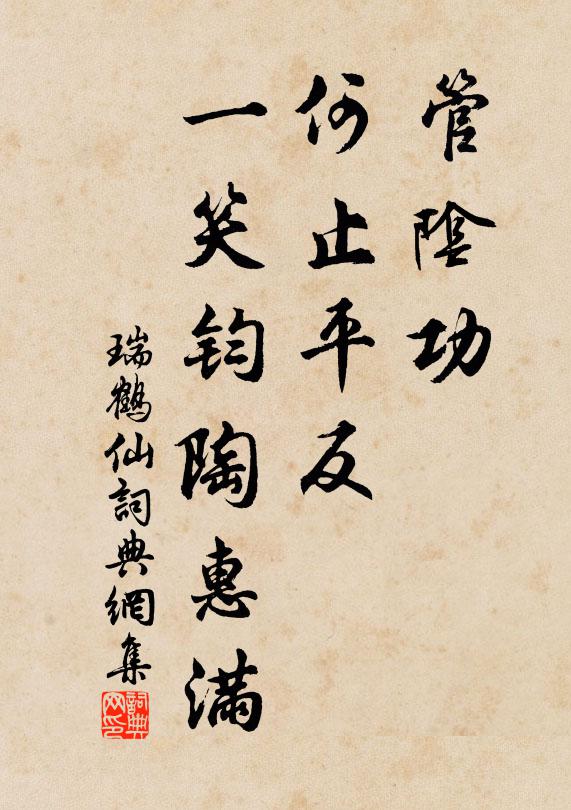 管陰功
何止平反
一笑鈞陶惠滿
瑞鶴仙詞典網集
詞典网印